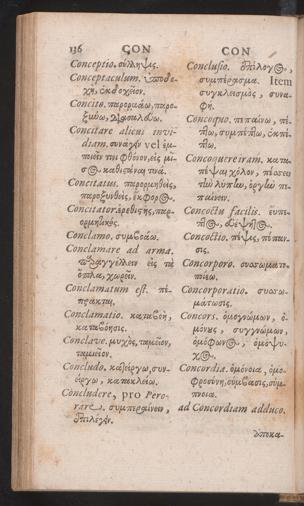 136 CON CON
Conceptio. σύλληψις.
Conceptaculum. ὑποδο-
χὴ, ἐκδοχεῖον.
Concito. παρορμάω, παρο-
ξύνω,
Concitare alicui invi-
diam. συνάγειν vel ἐμ-
ποιεῖν τινὶ φθόνον, εἰς μῖ-
σος καθιστάναι τινά.
Concitatus. παρορμηθείς,
παροξυνθείς, ἔκφορος.
Concitator. ἐρεθιστὴς, παρ-
ορμητικός.
Conclamo. συμβοάω.
Conclamare ad arma.
παραγγέλλειν εἰς τὰ
ὅπλα, χωρεῖν.
Conclamatum est. πέ-
πρακται.
Conclamatio. καταβοὴ,
καταβόησις.
Conclave. μυχὸς, ταμεῖον,
ταμιεῖον.
Concludo. καθείργω, συν-
είργω, κατακλείω.
Concludere, pro Pero-
rare. συμπεραίνειν,
ἐπιλέγειν.
Conclusio. ἐπίλογος,
συμπέρασμα. Item
συγκλεισμὸς, συνα-
φή.
Concoquo. πεπαίνω, πέ-
πτω, συμπέπτω, ἐκπέ-
πτω.
Concoquere iram. κατα-
πέψαι χόλον, πέσσειν
τὴν λύπην, ὀργὴν πε-
παίνειν.
Concoctu facilis. εὔπε-
πτος,
Concoctio. πέψις, πέπαν-
σις.
Concorporo. συσωματο-
ποιέω.
Concorporatio. συσσω-
μάτωσις.
Concors. ὁμογνώμων, ὁ-
μόνους, συγγνώμων,
ὁμόφωνος, ὁμόψυ-
χος.
Concordia. ὁμόνοια, ὁμο-
φροσύνη, σύμβασις, σύμ-
πνοια.
ad Concordiam adduco.
ἀποκα-